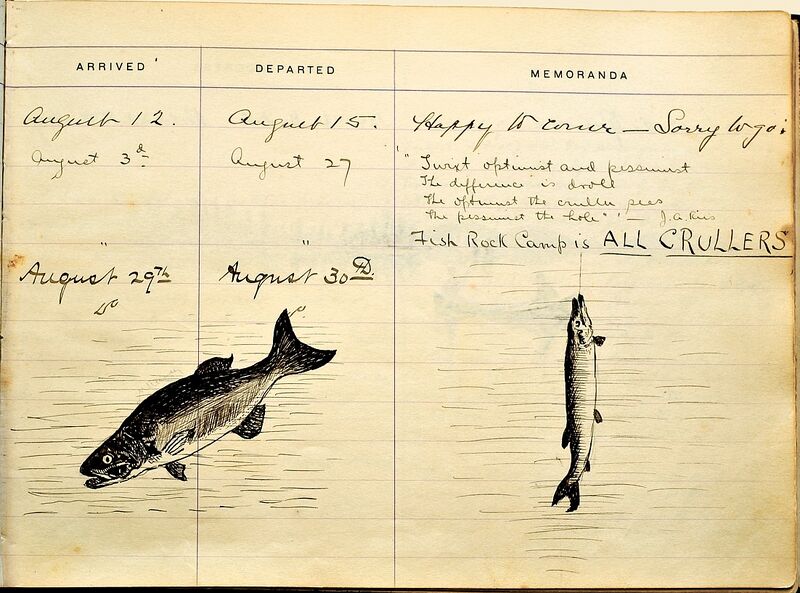 ARRIVED DEPARTED MEMORANDA
August 12. August 15. Happy to come — Sorry to go.
August 3d August 27 "Twixt optimist and pessimist
The difference is droll
The optimist the cruller sees
The pessimist the hole" — J.A.
Fish Rock Camp is ALL CRULLERS
" "
August 29th August 30th
do do